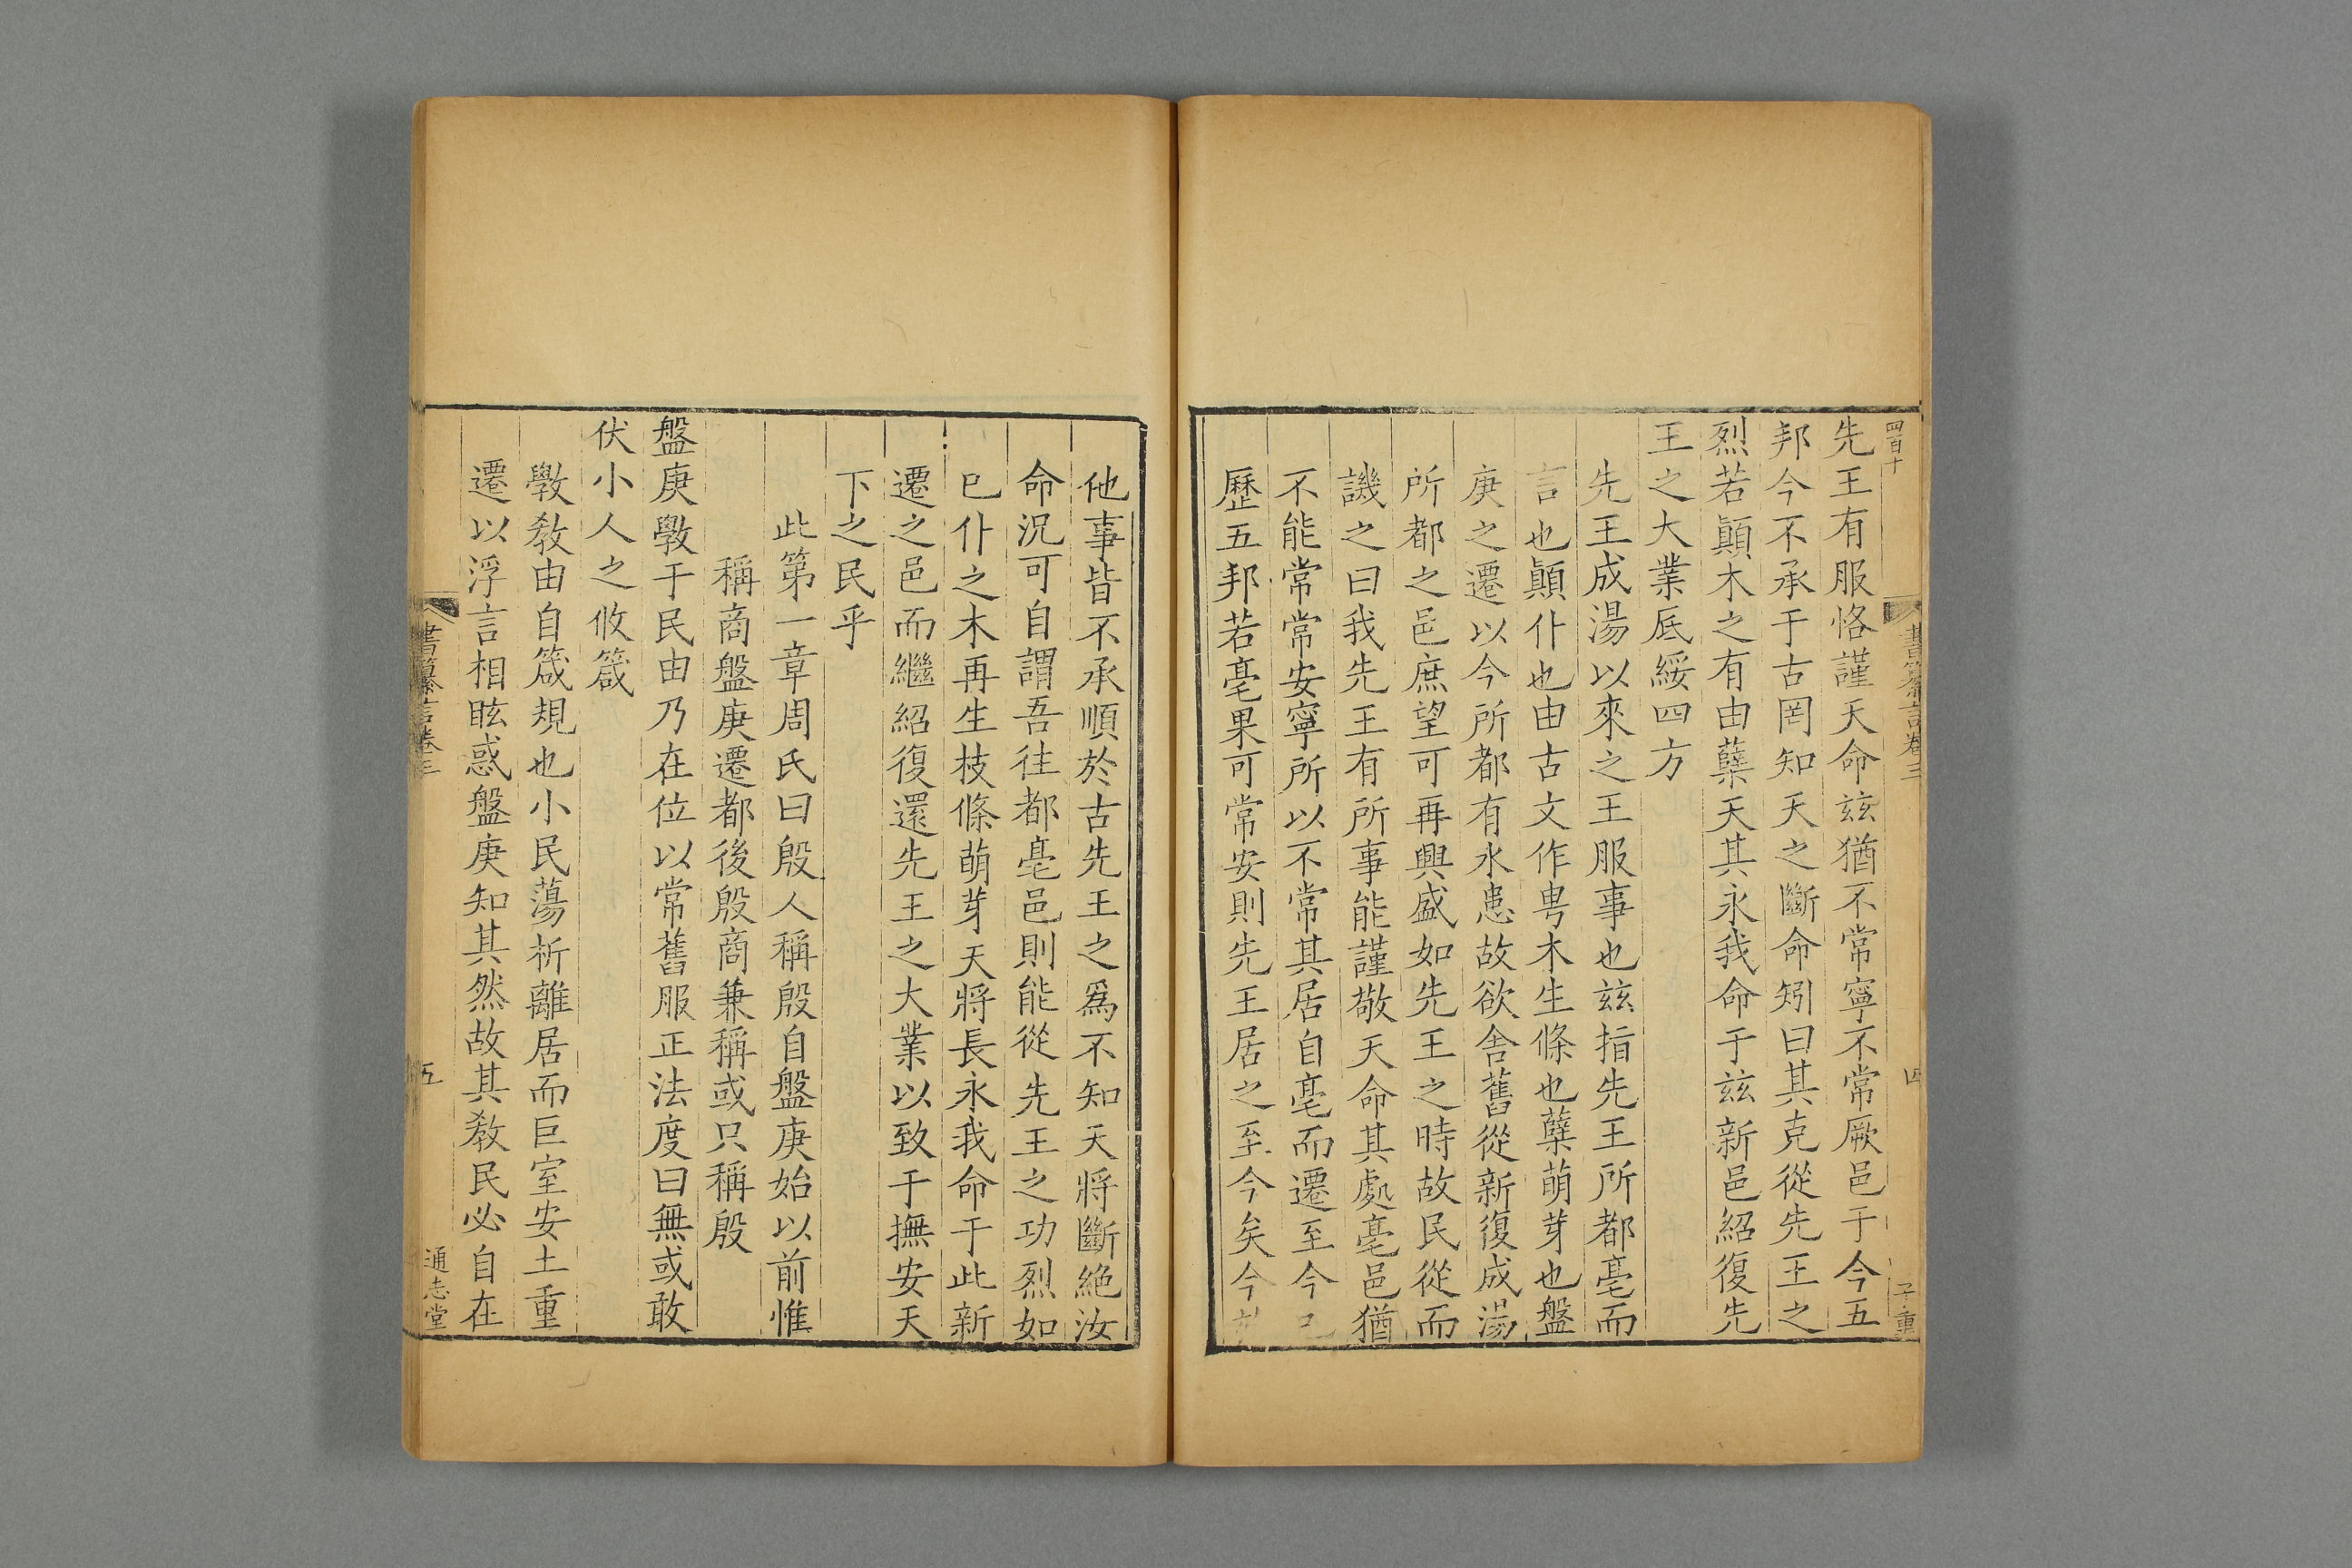 四百十
子重
先王有服恪謹天命玆猶不常寧不常厥邑于今五
邦今不承于古罔知天之斷命矧曰其克從先王之
烈若顚木之有由蘖天其永我命于玆新邑紹復先
王之大業厎綏四方
先王成湯以來之王服事也玆指先王所都亳而
言也顚仆也由古文作甹木生條也蘖萌芽也盤
庚之遷以今所都有水患故欲舍舊從新復成湯
所都之邑庶望可再興盛如先王之時故民從而
譏之曰我先王有所事能謹敬天命其處亳邑猶
不能常常安寧所以不常其居自亳而遷至今已
歷五邦若亳果可常安則先王居之至今矣今
他事皆不承順於古先王之爲不知天將斷絶汝
命況可自謂吾往都亳邑則能從先王之功烈如
已仆之木再生枝條萌芽天將長永我命于此新
遷之邑而繼紹復還先王之大業以致于撫安天
下之民乎
此第一章周氏曰殷人稱殷自盤庚始以前惟
稱商盤庚遷都後殷商兼稱或只稱殷
盤庚斆于民由乃在位以常舊服正法度曰無或敢
伏小人之攸箴
斆教由自箴規也小民蕩析離居而巨室安土重
遷以浮言相眩惑盤庚知其然故其教民必自在
書纂言卷三
五
通志堂